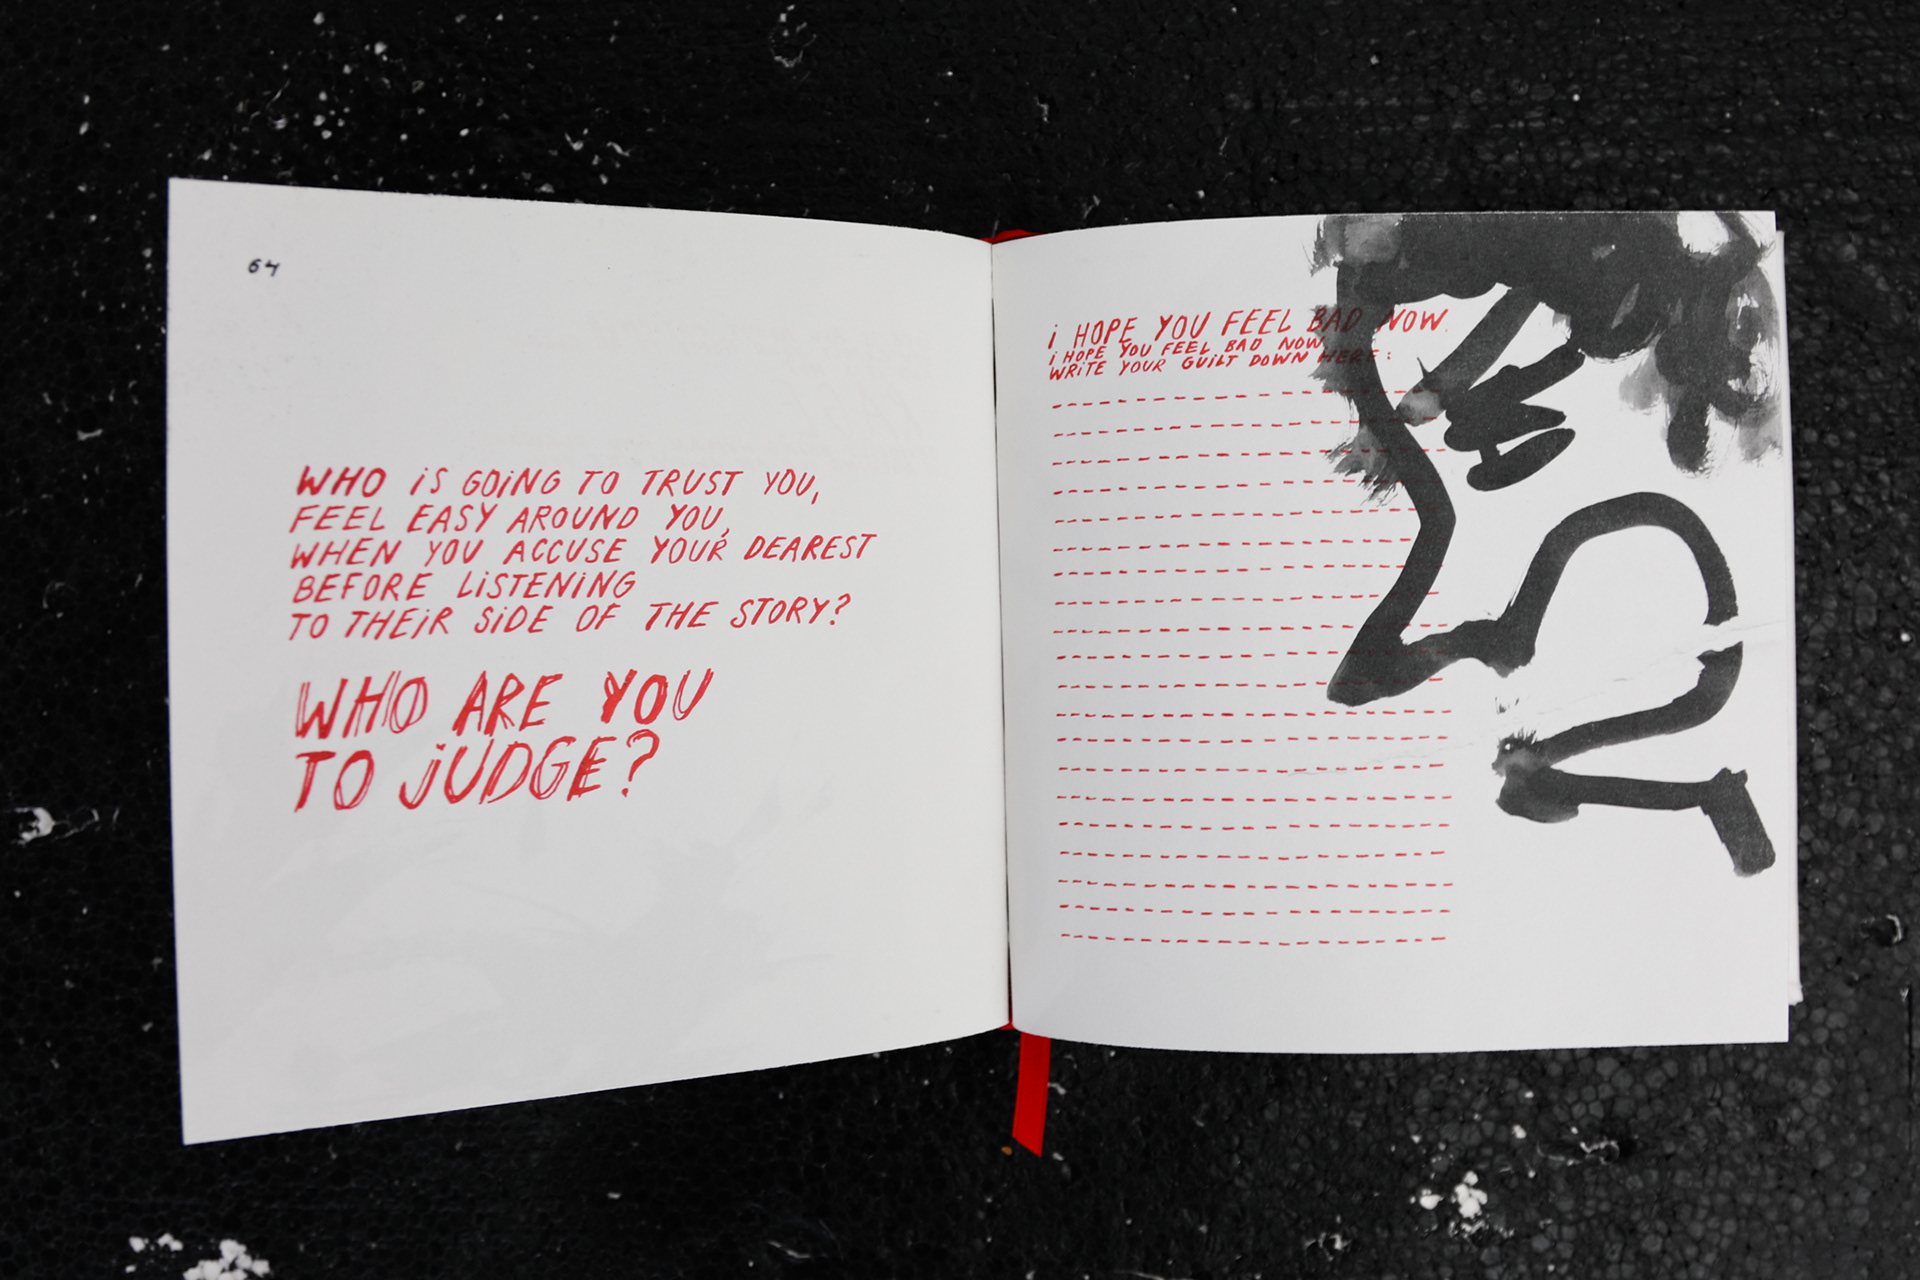 64
WHO iS GOiNG TO TRUST YOU,
FEEL EASY AROUND YOU,
WHEN YOU ACCUSE YOUR DEAREST
BEFORE LiSTENiNG
TO THEiR SiDE OF THE STORY?
WHO ARE YOU
TO jUDGE?
i HOPE YOU FEEL BAD NOW.
i HOPE YOU FEEL BAD NOW
WRiTE YOUR GUiLT DOWN HERE: